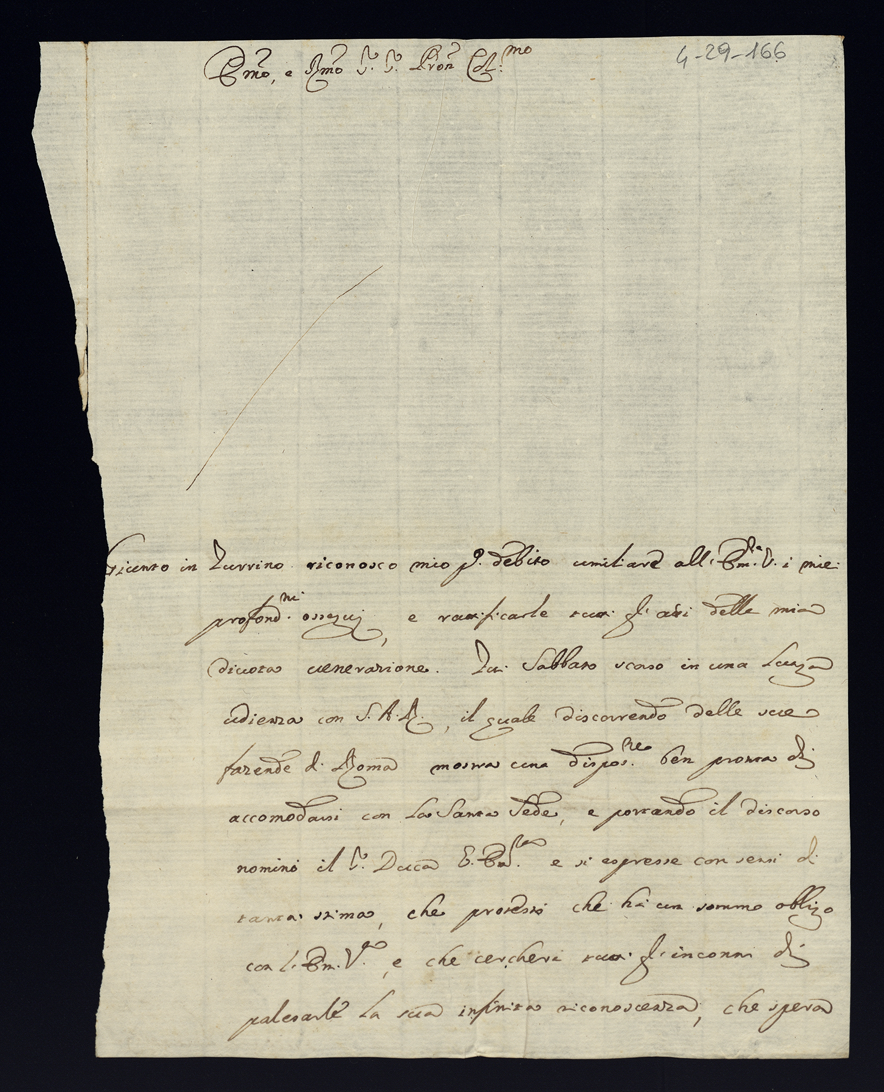 4-29-166
Em̃o, e Rm̃o Sr. Sr. Pron̄ Col:mo
Giunto in Turrino riconosco mio p. debito umiliare all' Em.za V. i miei
profond.mi ossequij, e ratificarle tutti gl' atti della mia
divota venerazione. Fui Sabbato scorso in una lunga
udienza con S. A. R., il quale discorrendo delle sue
facende di Roma mostra una dispos.ne ben pronta di
accomodarsi con la Santa Sede, e portando il discorso
nominò il Sr. Duca e si espresse con sensi di
tanta stima, che protestò che hà un sommo obligo
con l' Em. V.ra, e che cercherà tutti gl' incontri di
palesarle la sua infinita riconoscenza, che spera